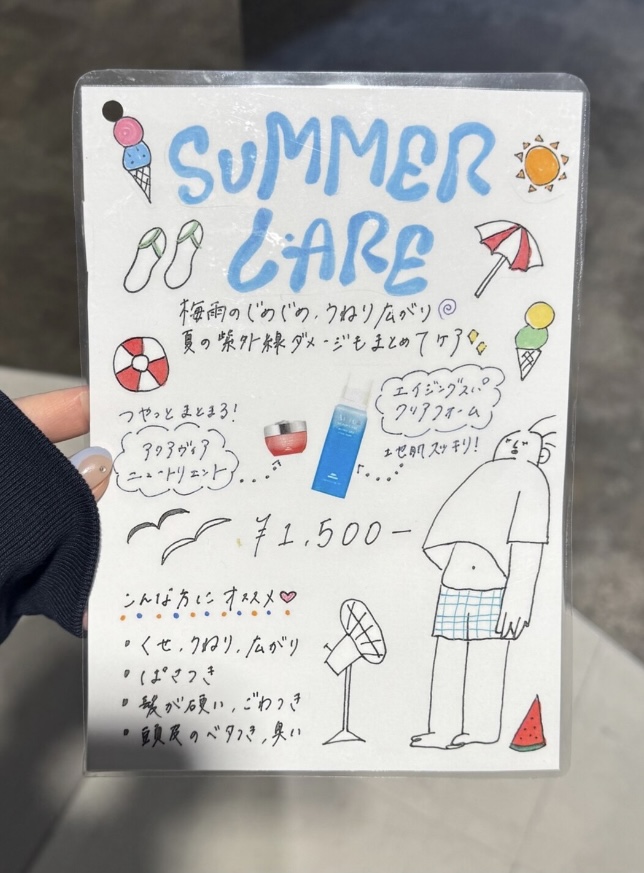 SUMMER
CARE
梅雨のじめじめ、うねり広がり
夏の紫外線ダメージもまとめてケア
つやっとまとまる!
アクアヴィア
ニュートリエント
エイジングスパ
クリアフォーム
地肌スッキリ!
¥1,500-
こんな方にオススメ
・くせ、うねり、広がり
・ぱさつき
・髪が硬い、ごわつき
・頭皮のベタつき、臭い